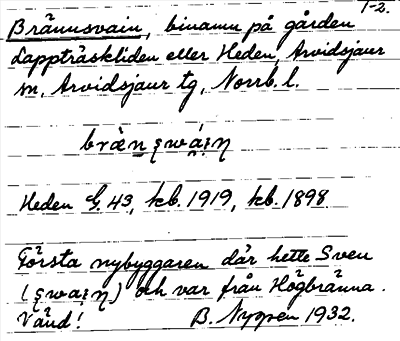 1-2.
Brännsvain, binamn på gården
Lappträskliden eller Heden, Arvidsjaur
sn, Arvidsjaur tg, Norrb. l.
Heden G. 43, kb. 1919, kb. 1898
Första nybyggaren där hette Sven
och var från Högbränna.
Vänd! B. Nyppen 1932.